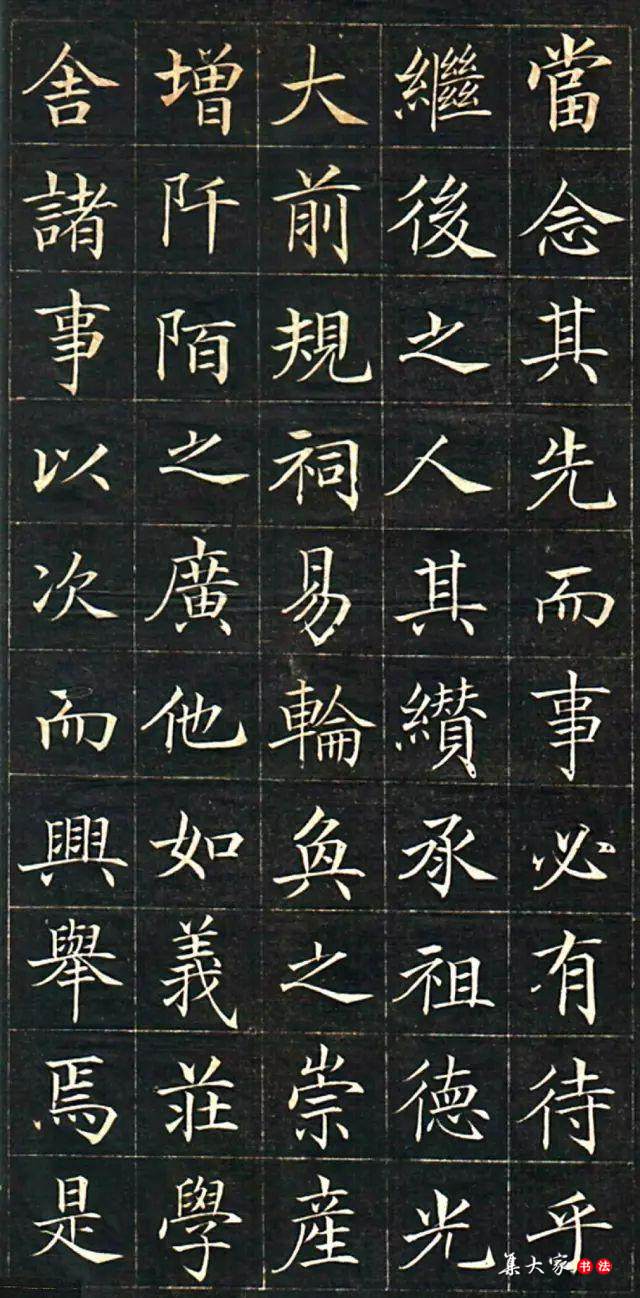 當念其先而事必有待乎
繼後之人其纘承祖德光
大前規祠易輪奐之崇產
增阡陌之廣他如義莊學
舍諸事以次而興舉焉是
集大家书法